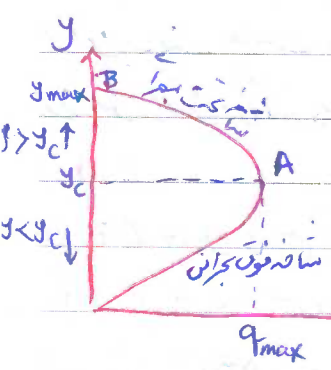 y
B
y max
شاخه تحت بحرانی
y > y_c ↑
y_c
A
y < y_c ↓
شاخه فوق بحرانی
q max